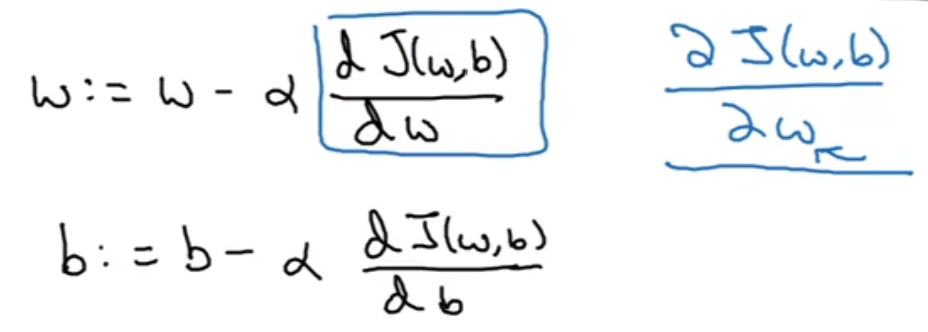 w := w - α dJ(w,b)/dw   ∂J(w,b)/∂w
b := b - α dJ(w,b)/db